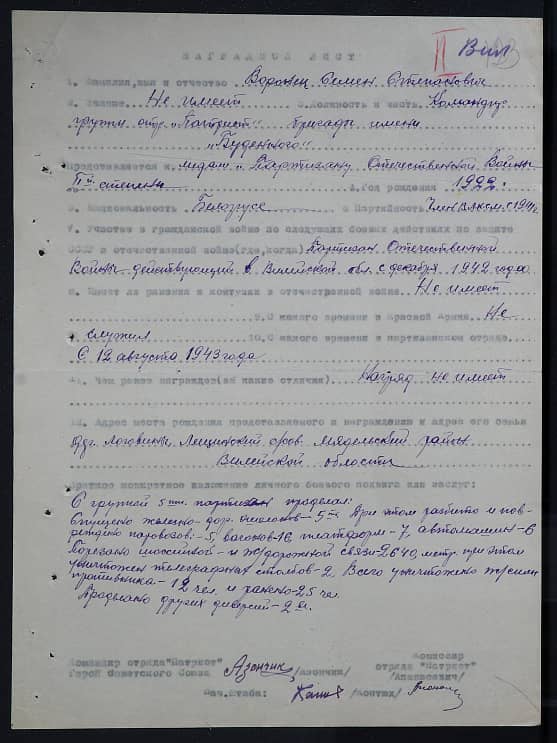 II Вил
НАГРАДНОЙ ЛИСТ
1. Фамилия, имя и отчество Воронец Семен Степанович
2. Звание Не имеет 3. Должность и часть Командир
группы отр. "Патриот" бригады имени
"Буденного"
Представляется к медали "Партизану Отечественной Войны
II й степени 4. Год рождения 1922 г.
5. Национальность Белорусс 6. Партийность Член ВЛКСМ с 1941 г.
7. Участие в гражданской войне по следующих боевых действиях по защите
СССР в отечественной войне (где, когда) Партизан Отечественной
Войны действующий в Вилейской обл. с декабря 1942 года
8. Имеет ли ранения и контузии в отечественной войне Не имеет
9. С какого времени в Красной Армии Не
служил 10. С какого времени в партизанском отряде
С 12 августа 1943 года
11. Чем ранее награжден (за какие отличия) Наград не имеет
12. Адрес места рождения представляемого к награждению и адрес его семьи
дер. Логовины, с/сов. Мядельский район
Вилейской области
Краткое конкретное изложение личного боевого подвига или заслуг:
С группой 5 чел. партизан проделал:
Спущено железно-дор. эшелонов - 5 При этом разбито и пов-
реждено паровозов - 5, вагонов - 16, платформ - 7, автомашин - 6
Порезано шоссейной и ж/дорожной связи - 2640 метр. при этом
уничтожен телеграфных столбов - 2. Всего уничтожено ж/силы
противника - 12 чел. и ранено - 25 чел.
Проделано других диверсий - 2
Командир отряда "Патриот" Азончик /Азончик/
Герой Советского Союза
Комиссар
отряда "Патриот"
/Апанасевич/
Нач. Штаба: /Контах/